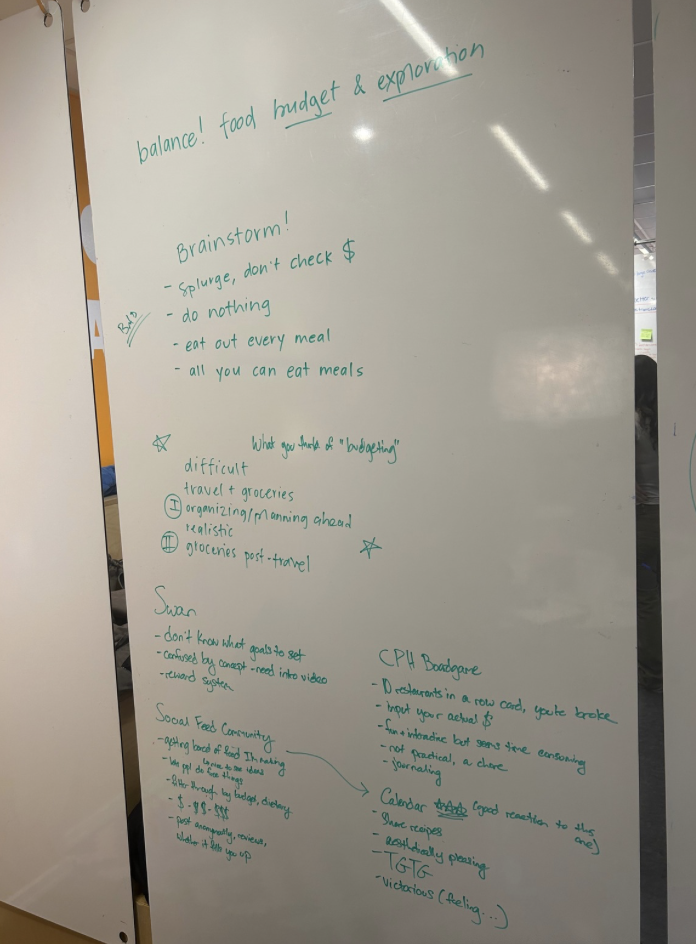 balance! food budget & exploration
Brainstorm!
- splurge, don't check $
- do nothing
- eat out every meal
- all you can eat meals
BAD
What you think of "budgeting"
difficult
travel + groceries
I organizing/planning ahead
realistic
II groceries post-travel
Swan
- don't know what goals to set
- confused by concept - need intro video
- reward system
Social Feed Community
- getting bored of food I'm making
nice to see ideas
- lets ppl do free things
- filter through by budget, dietary
- $ - $$ - $$$
- post anonymously, reviews,
whether it fills you up
CPH Boardgame
- 10 restaurants in a row card, you're broke
- input your actual $
- fun + interactive but seems time consuming
- not practical, a chore
- journaling
Calendar (good reaction to this one)
- Share recipes
- aesthetically pleasing
- TGTG
- victorious (feeling...)